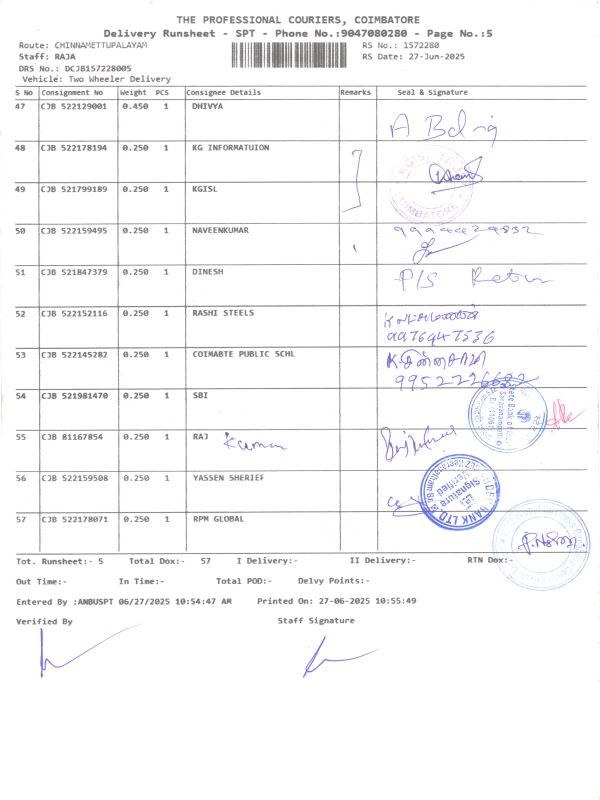 THE PROFESSIONAL COURIERS, COIMBATORE
Delivery Runsheet - SPT - Phone No.:9047080280 - Page No.:5
Route: CHINNAMETTUPALAYAM RS No.: 1572280
Staff: RAJA RS Date: 27-Jun-2025
DRS No.: DCJB157228005
Vehicle: Two Wheeler Delivery
S No Consignment No Weight PCS Consignee Details Remarks Seal & Signature
47 CJB 522129001 0.450 1 DHIVYA
48 CJB 522178194 0.250 1 KG INFORMATUION
49 CJB 521799189 0.250 1 KGISL
COIMBATORE
50 CJB 522159495 0.250 1 NAVEENKUMAR
51 CJB 521847379 0.250 1 DINESH P/S Return
52 CJB 522152116 0.250 1 RASHI STEELS
9976947536
53 CJB 522145282 0.250 1 COIMABTE PUBLIC SCHL
9952226682
54 CJB 521981470 0.250 1 SBI
55 CJB 81167854 0.250 1 RAJ Kumar
56 CJB 522159508 0.250 1 YASSEN SHERIEF
BANK LTD
Signature
Verified
57 CJB 522178071 0.250 1 RPM GLOBAL
Tot. Runsheet:- 5 Total Dox:- 57 I Delivery:- II Delivery:- RTN Dox:-
Out Time:- In Time:- Total POD:- Delvy Points:-
Entered By :ANBUSPT 06/27/2025 10:54:47 AM Printed On: 27-06-2025 10:55:49
Verified By Staff Signature